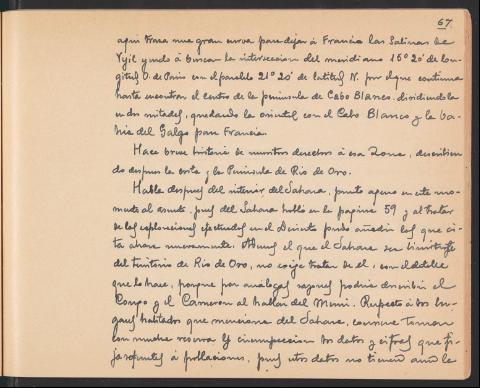 67.
aqui traza una gran curva para dejar á Francia las Salinas de
Yyil yendo á buscar la interseccion del meridiano 15° 20' de lon-
gitud O. de Paris con el paralelo 21° 20' de latitud N. por el que continua
hasta encontrar el centro de la peninsula de Cabo Blanco dividiendola
en dos mitades, quedando la oriental con el Cabo Blanco y la ba-
hia del Galgo para Francia.
Hace breve historia de nuestros derechos á esa Zona, describien-
do despues la costa y la Peninsula de Rio de Oro.
Habla despues del interior del Sahara, punto ageno en este mo-
mento al asunto, pues del Sahara habló en la pagina 59 y al tratar
de las exploraciones efectuadas en el Desierto pudo añadir las que ci-
ta ahora nuevamente. el que el Sahara sea limitrofe
del territorio de Rio de Oro, no exige tratar de él, con el detalle
que lo hace, porque por análogas razones podria describir el
Congo y el Camerón al hablar del Muni. Respecto á los lu-
gares habitados que menciona del Sahara, conviene tomar
con mucha reserva y circunspeccion los datos y cifras que fi-
ja respecto á poblaciones, pues estos datos no tienen aun la